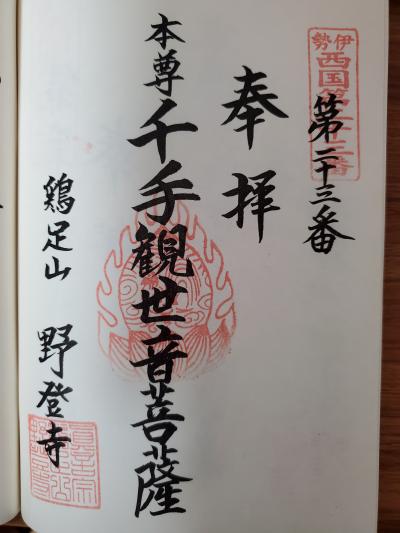 伊勢
西国第二十三番
第二十三番
奉拝
本尊千手観世音菩薩
鶏足山 野登寺